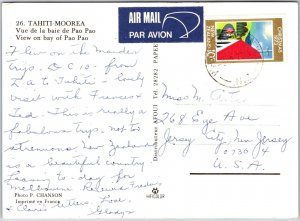 26. TAHITI-MOOREA
Vue de la baie de Pao Pao
View on bay of Pao Pao
AIR MAIL
PAR AVION
Flew on the Maiden
trip DC 10. from
L A to Tahiti. Lovely
visit with Frances
& Ted. This really is a
fabulous trip. Not to
strenuous New Zealand
is a beautiful country.
Leaving to-day for
Melbourne
Love,
Gladys
Photo P. CHANSON
Imprimé en France
Distributeur APOUT Tel 28282 PAPEETE
Miss M.
768 Ege Ave
Jersey City New Jersey
07304
U. S. A.